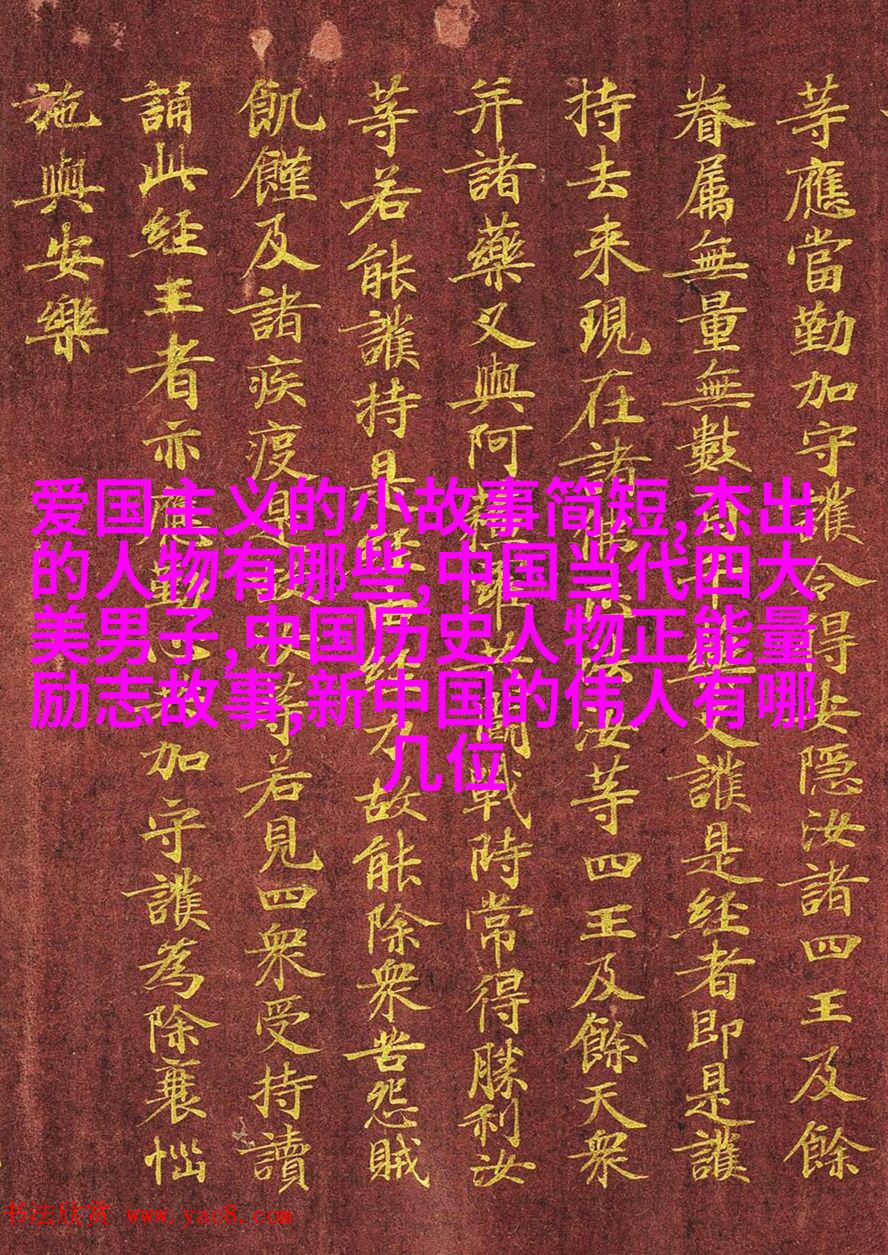 等應當勤加守護令得安隱汝諸四王及餘
眷属無量無數叉護是經者即是護
持去来現在諸佛汝等四王及餘天衆
并諸藥叉與阿蘇羅鬪戰時常得勝利汝
等若能護持是經力故能除衆苦怨賊
飢饉及諸疾疫是等若見四衆受持讀
誦此經王者亦應勤加守護為除衰惱
施與安樂
爱国主义的小故事简短,杰出
的人物有哪些,中国当代四大
美男子,中国历史人物正能量
励志故事,新中国的伟人有哪
几位
书法欣赏 www.yac8.com